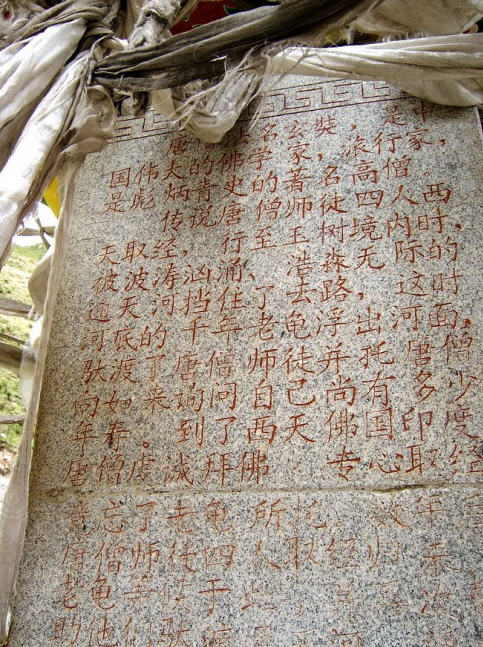 唐僧法名玄奘，是中
国伟大的佛学家，旅行家，
是彪炳青史的著名高僧。
传说唐僧师徒四人西
天取经，行至玉树境内时，
被波涛汹涌、浩淼无际的
通天河挡住了去路，这时
河底的千年老龟浮出河面，
驮渡了唐僧师徒并托唐僧
向如来询问自已尚有多少
年寿。到了西天佛国印度
唐僧虔诚拜佛 专心取经
忘了老龟所托。数年
唐僧师徒四人取经归来
老龟